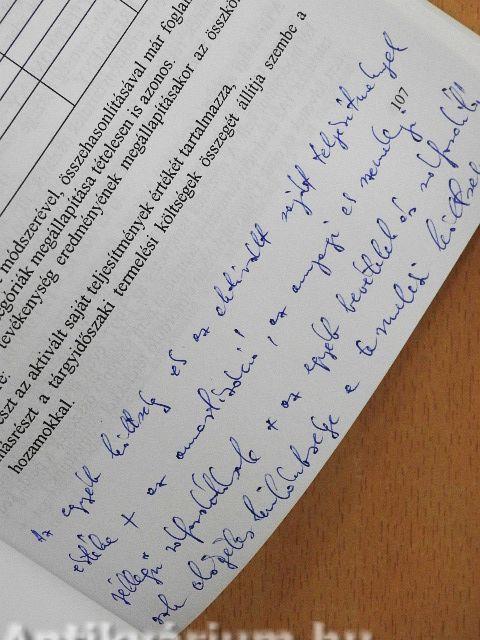 módszerével, összehasonlításával már foglal
egóriák megállapítása tételesen is azonos.
tevékenység eredményének megállapításakor az összkö
re:
részt az aktivált saját teljesítmények értékét tartalmazza,
másrészt a tárgyidőszaki termelési költségek összegét állítja szembe a
hozamokkal.
107
Az egyéb költség és az aktivált saját teljesítmények
értéke + az amortizáció, az anyagi és
jellegű ráfordítások + az egyéb bevételek és ráfordítá
sok előjeles különbsége a termelési költség
Antikvárium.hu